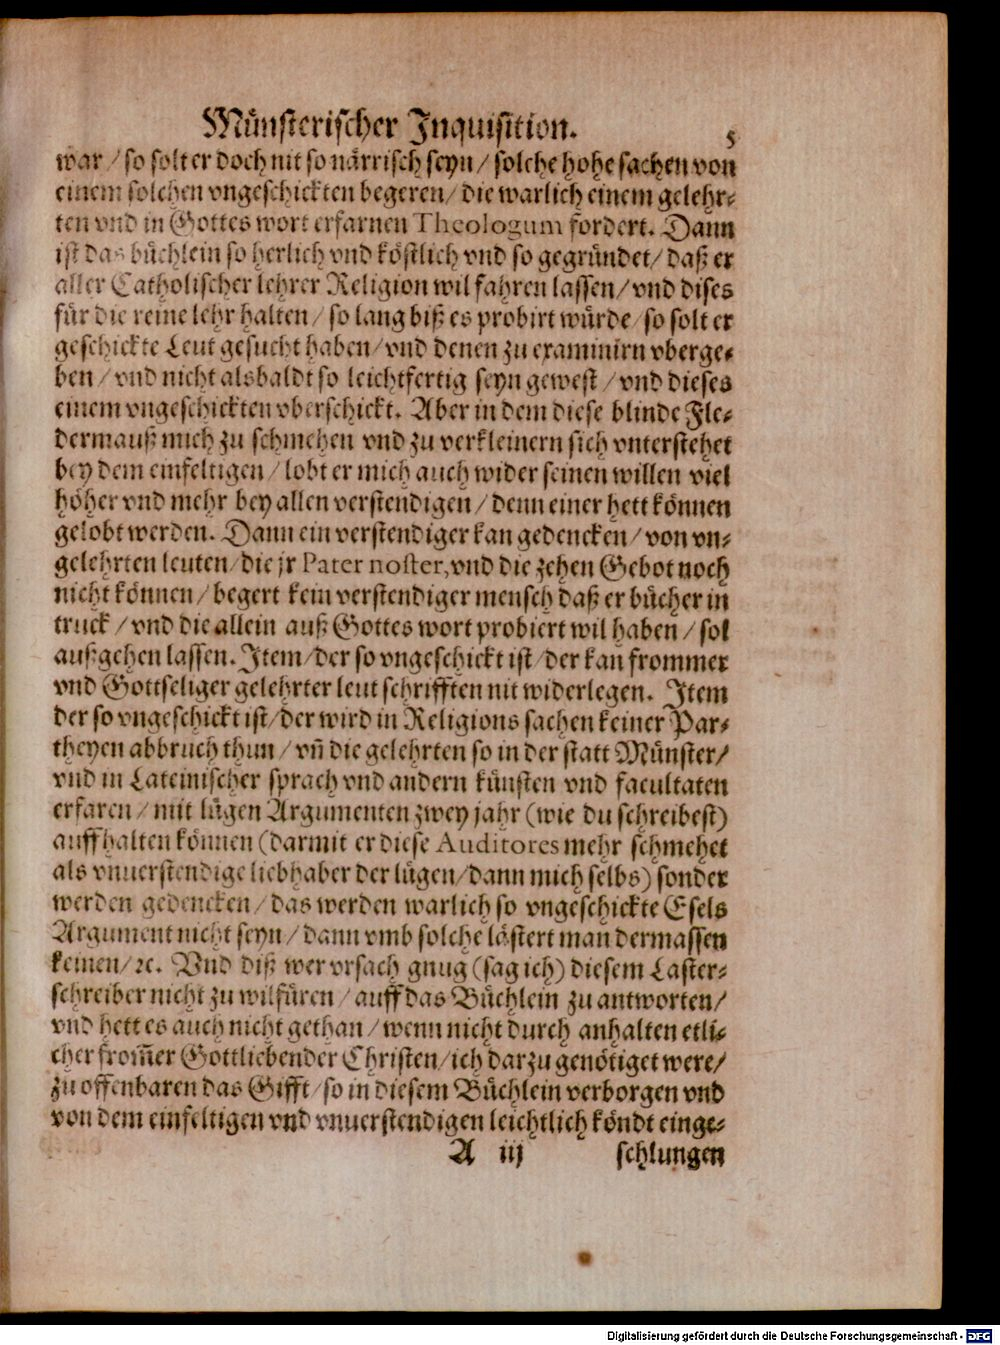 Münsterischer Inquisition. 5
war / so solt er doch nit so närrisch seyn / solche hohe sachen von
einem solchen vngeschickten begeren / die warlich einem gelehr-
ten vnd in Gottes wort erfarnen Theologum fordert. Dann
ist das büchlein so herlich vnd köstlich vnd so gegründet / daß er
aller Catholischer lehrer Religion wil fahren lassen / vnd dises
für die reine lehr halten / so lang biß es probirt würde / so solt er
geschickte Leut gesucht haben / vnd denen zu examinirn vberge-
ben / vnd nicht alsbaldt so leichtfertig seyn gewest / vnd dieses
einem vngeschickten vberschickt. Aber in dem diese blinde Fle-
dermauß mich zu schmehen vnd zu verkleinern sich vnterstehet
bey dem einfeltigen / lobt er mich auch wider seinen willen viel
höher vnd mehr bey allen verstendigen / denn einer hett können
gelobt werden. Dann ein verstendiger kan gedencken / von vn-
gelehrten leuten / die jr Pater noster, vnd die zehen Gebot noch
nicht können / begert kein verstendiger mensch daß er bücher in
truck / vnd die allein auß Gottes wort probiert wil haben / sol
außgehen lassen. Item / der so vngeschickt ist / der kan frommer
vnd Gottseliger gelehrter leut schrifften nit widerlegen. Item
der so vngeschickt ist / der wird in Religions sachen keiner Par-
theyen abbruch thun / vn̄ die gelehrten so in der statt Münster /
vnd in Lateinischer sprach vnd andern künsten vnd facultaten
erfaren / mit lügen Argumenten zwey jahr (wie du schreibest)
auffhalten können (darmit er diese Auditores mehr schmehet
als vnuerstendige liebhaber der lügen / dann mich selbs) sonder
werden gedencken / das werden warlich so vngeschickte Esels
Argument nicht seyn / dann vmb solche lästert man dermassen
keinen / ꝛc. Vnd diß wer vrsach gnug (sag ich) diesem Laster-
schreiber nicht zu wilfüren / auff das Büchlein zu antworten /
vnd hett es auch nicht gethan / wenn nicht durch anhalten etli-
cher from̄er Gottliebender Christen / ich darzu genötiget were /
zu offenbaren das Gifft / so in diesem Büchlein verborgen vnd
von dem einfeltigen vnd vnuerstendigen leichtlich köndt einge-
A iij schlungen
Digitalisierung gefördert durch die Deutsche Forschungsgemeinschaft - DFG